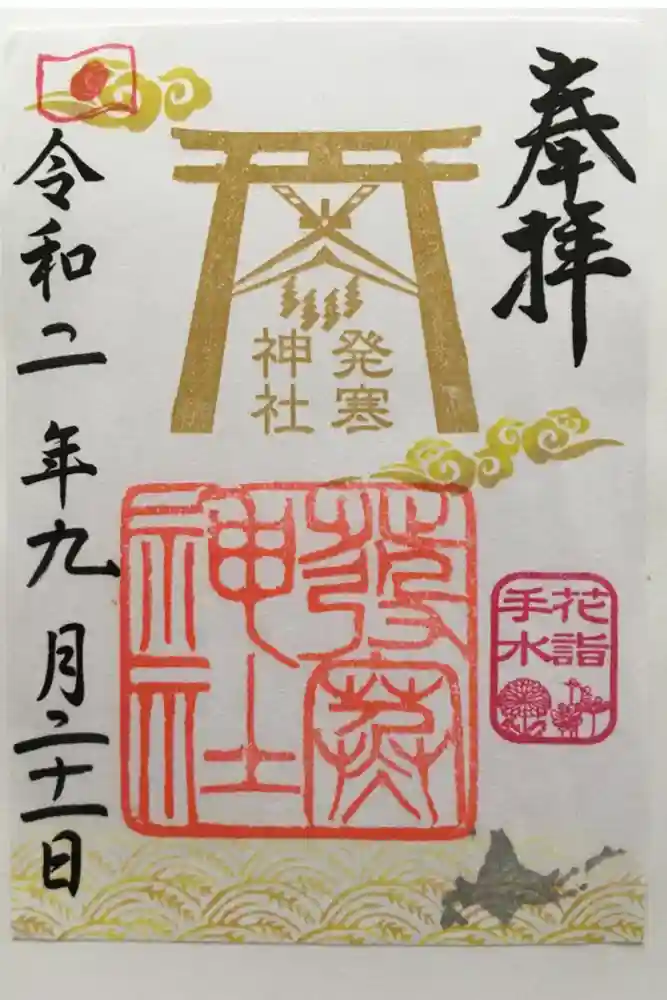 奉拝
発寒
神社
發寒
神社
花詣
手水
令和二年九月二十一日